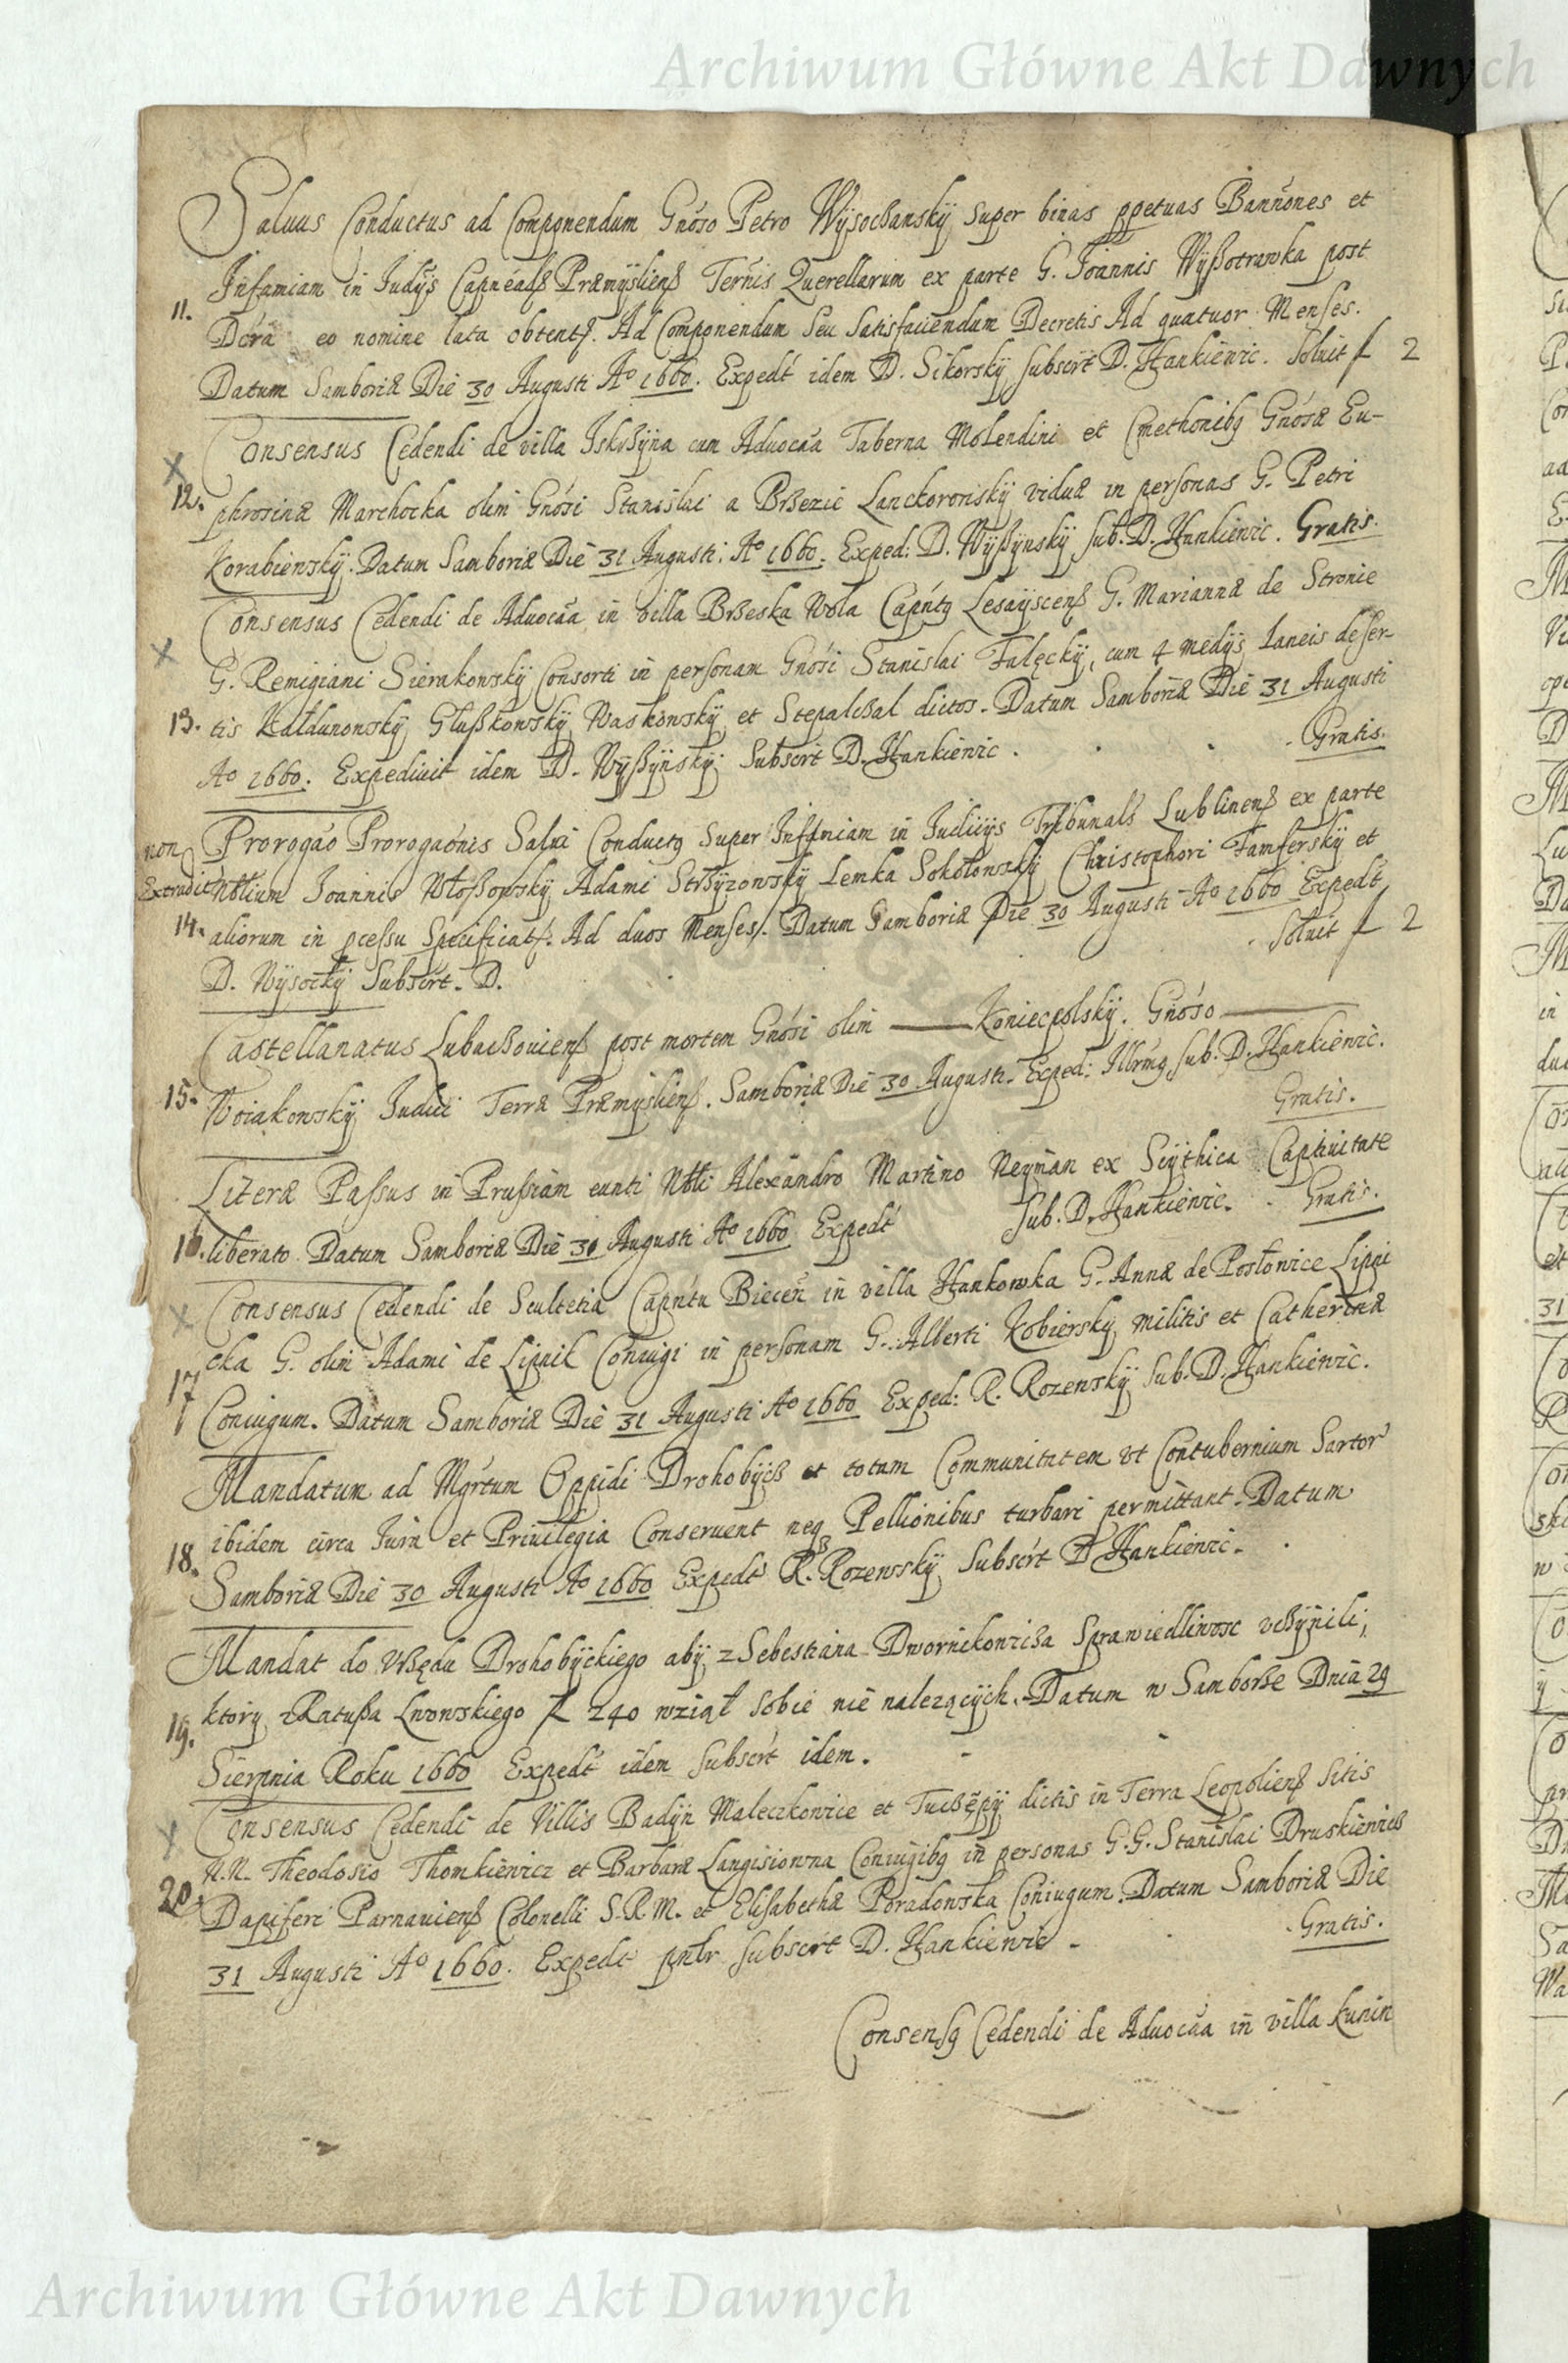 Archiwum Główne Akt Dawnych
Saluus Conductus ad Componendum Gnoso Petro Wÿsoczanskÿ super binas ppetuas Bannones et
Infamiam in Judÿs Capnealß Præmÿslienß Ternis Querellarum ex parte G. Joannis Wÿßotrawka post
11. Dcra eo nomine lata obtentß. Ad Componendum seu satisfaciendum Decretis Ad quatuor Menses.
Datum Samboriæ Die 30 Augusti Aº 1660. Expedt idem D. Sikorskÿ subscrt D. Hankiewic. Soluit f 2
Consensus Cedendi de villa Iskrzÿna cum Aduocãa Taberna Molendini et Cmethonibq Gnosæ Eu-
12. phrosinæ Marchocka olim Gnosi Stanislai a Brzezic Lanckoronskÿ viduæ in personas G. Petri
Korabiewskÿ. Datum Samboriæ Die 31 Augusti. Aº 1660. Exped: D. Wÿßÿnskÿ sub. D. Hankiewic. Gratis.
Consensus Cedendi de Aduocãa in villa Brzeska Wola Capntq Lesaÿscenß G. Mariannæ de Stronie
G. Remigiani Sierakowskÿ Consorti in personam Gnosi Stanislai Falęckÿ, cum 4 medÿs Laneis deser-
13. tis Kałdunowskÿ Głußkowskÿ Waskowskÿ et Stepalczal dictos. Datum Samboriæ Die 31 Augusti
Aº 1660. Expediuit idem D. Wÿßÿnskÿ subscrt D. Hankiewic. Gratis.
non Prorogao Prorogaonis Salui Conductq super Infamiam in Judicÿs Tribunals Lublinenß ex parte
Extradit Nblium Joannis Włoßowskÿ Adami Strzÿzowskÿ Lemka Sokołowskÿ Christophori Famferskÿ et
14. aliorum in pcessu Specificatß. Ad duos Menses. Datum Samboriæ Die 30 Augusti Aº 1660 Expedt
D. Wÿsockÿ Subscrt. D. Soluit f 2
Castellanatus Lubaczouienß post mortem Gnosi olim —— Koniecpolskÿ. Gnoso ——
15. Woiakowskÿ Judici Terræ Præmÿslienß. Samboriæ Die 30 Augusti. Exped: Illrmq sub. D. Hankiewic.
Gratis.
Literæ Passus in Prussiam eunti Nbli Alexandro Martino Neyman ex Scÿthica Captiuitate
16. liberato Datum Samboriæ Die 31 Augusti Aº 1660 Expedt sub. D. Hankiewic. Gratis.
Consensus Cedendi de Scultetia Capntu Biecen in villa Hankowka G. Annæ de Posłowice Lipni
17 cka G. olim Adami de Lipnik Coniugi in personam G. Alberti Kobierskÿ militis et Catherinæ
Coniugum. Datum Samboriæ Die 31 Augusti Aº 1660 Exped: R. Rozewskÿ sub. D. Hankiewic.
Mandatum ad Mgrtum Oppidi Drohobÿcz et totam Communitatem vt Contubernium Sartor
ibidem circa Jura et Priuilegia Conseruent neq Pellionibus turbari permittant. Datum
18. Samboriæ Die 30 Augusti Aº 1660 Expedt R. Rozewskÿ Subscrt D Hankiewic.
Mandat do Vrzędu Drohobÿckiego abÿ z Sebestiana Dwornikowicza Sprawiedliwosc vczÿnili,
19. ktory z Ratußa Lwowskiego f 240 wziął sobie nie nalezącÿch. Datum w Samborze Dnia 29
Sierpnia Roku 1660 Expedt idem subscrt idem.
Consensus Cedendi de Villis Badÿn Maleczkowice et Tuczępÿ dictis in Terra Leopolienß sitis
N.N. Theodosio Thomkiewicz et Barbaræ Langisiowna Coniugibq in personas G.G. Stanislai Druskiewicz
20. Dapiferi Parnauienß Colonelli S.R.M. et Elisabethæ Poradowska Coniugum. Datum Samboriæ Die
31 Augusti Aº 1660. Expedt pnlr subscrt D. Hankiewic. Gratis.
Consensq Cedendi de Aduocãa in villa Kunin
Archiwum Główne Akt Dawnych